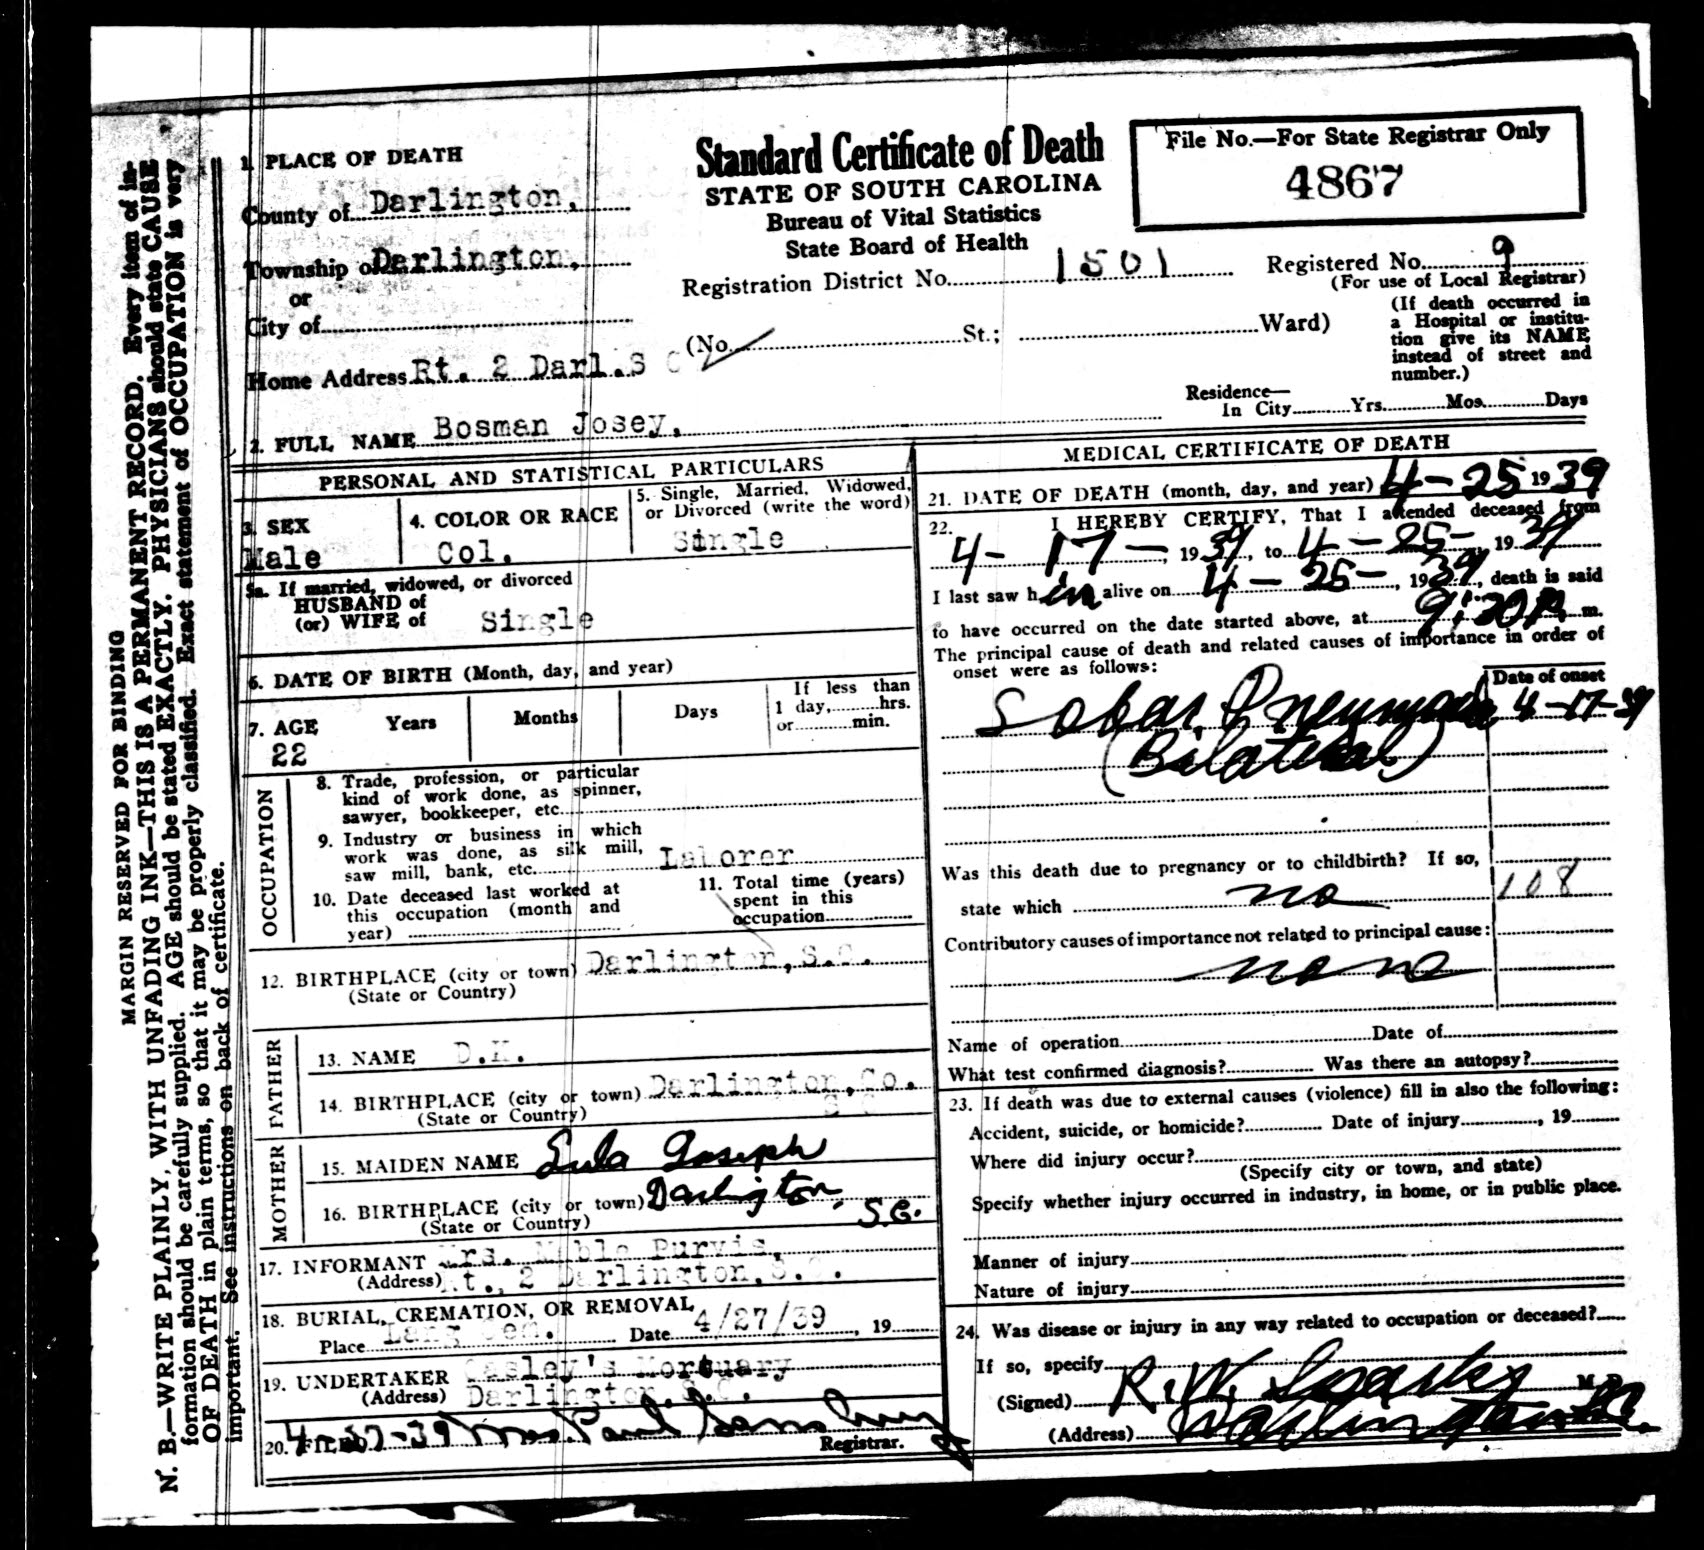 Standard Certificate of Death
STATE OF SOUTH CAROLINA
Bureau of Vital Statistics
State Board of Health
File No.—For State Registrar Only
4867
1. PLACE OF DEATH
County of Darlington,
Township of Darlington,
or
City of
Home Address Rt. 2 Darl.S C
Registration District No. 1501
Registered No. 9
(For use of Local Registrar)
(No. St.; Ward)
(If death occurred in
a Hospital or institu-
tion give its NAME
instead of street and
number.)
Residence—
In City Yrs. Mos. Days
2. FULL NAME Bosman Josey,
PERSONAL AND STATISTICAL PARTICULARS
3. SEX
Male
4. COLOR OR RACE
Col.
5. Single, Married, Widowed,
or Divorced (write the word)
Single
5a. If married, widowed, or divorced
HUSBAND of
(or) WIFE of Single
6. DATE OF BIRTH (Month, day, and year)
7. AGE Years Months Days
22
If less than
1 day, hrs.
or min.
OCCUPATION
8. Trade, profession, or particular
kind of work done, as spinner,
sawyer, bookkeeper, etc.
9. Industry or business in which
work was done, as silk mill,
saw mill, bank, etc. Laborer
10. Date deceased last worked at
this occupation (month and
year)
11. Total time (years)
spent in this
occupation
12. BIRTHPLACE (city or town) Darlington, S.C.
(State or Country)
FATHER
13. NAME
14. BIRTHPLACE (city or town) Darlington, Co.
(State or Country) S C
MOTHER
15. MAIDEN NAME Lula Joseph
16. BIRTHPLACE (city or town) Darlington,
(State or Country) S.C.
17. INFORMANT Mrs. Purvis,
(Address) Rt., 2 Darlington, S.C.
18. BURIAL, CREMATION, OR REMOVAL
Place Date 4/27/39, 19
19. UNDERTAKER Mortuary
(Address) Darlington, S.C.
20. Filed Mrs. Paul
Registrar.
MEDICAL CERTIFICATE OF DEATH
21. DATE OF DEATH (month, day, and year) 4-25 1939
22. I HEREBY CERTIFY, That I attended deceased from
4-17-, 1939, to 4-25-, 1939
I last saw him alive on 4-25-, 1939, death is said
to have occurred on the date started above, at 9:30 P. m.
The principal cause of death and related causes of importance in order of
onset were as follows:
Date of onset
Lobar Pneumonia 4-17-39
(Bilateral)
Was this death due to pregnancy or to childbirth? If so,
state which no
108
Contributory causes of importance not related to principal cause:
none
Name of operation Date of
What test confirmed diagnosis? Was there an autopsy?
23. If death was due to external causes (violence) fill in also the following:
Accident, suicide, or homicide? Date of injury, 19
Where did injury occur?
(Specify city or town, and state)
Specify whether injury occurred in industry, in home, or in public place.
Manner of injury
Nature of injury
24. Was disease or injury in any way related to occupation or deceased?
If so, specify
(Signed) R. W. M. D.
(Address) Darlington
MARGIN RESERVED FOR BINDING
N. B.—WRITE PLAINLY, WITH UNFADING INK—THIS IS A PERMANENT RECORD. Every item of in-
formation should be carefully supplied. AGE should be stated EXACTLY. PHYSICIANS should state CAUSE
OF DEATH in plain terms, so that it may be properly classified. Exact statement of OCCUPATION is very
important. See instructions on back of certificate.